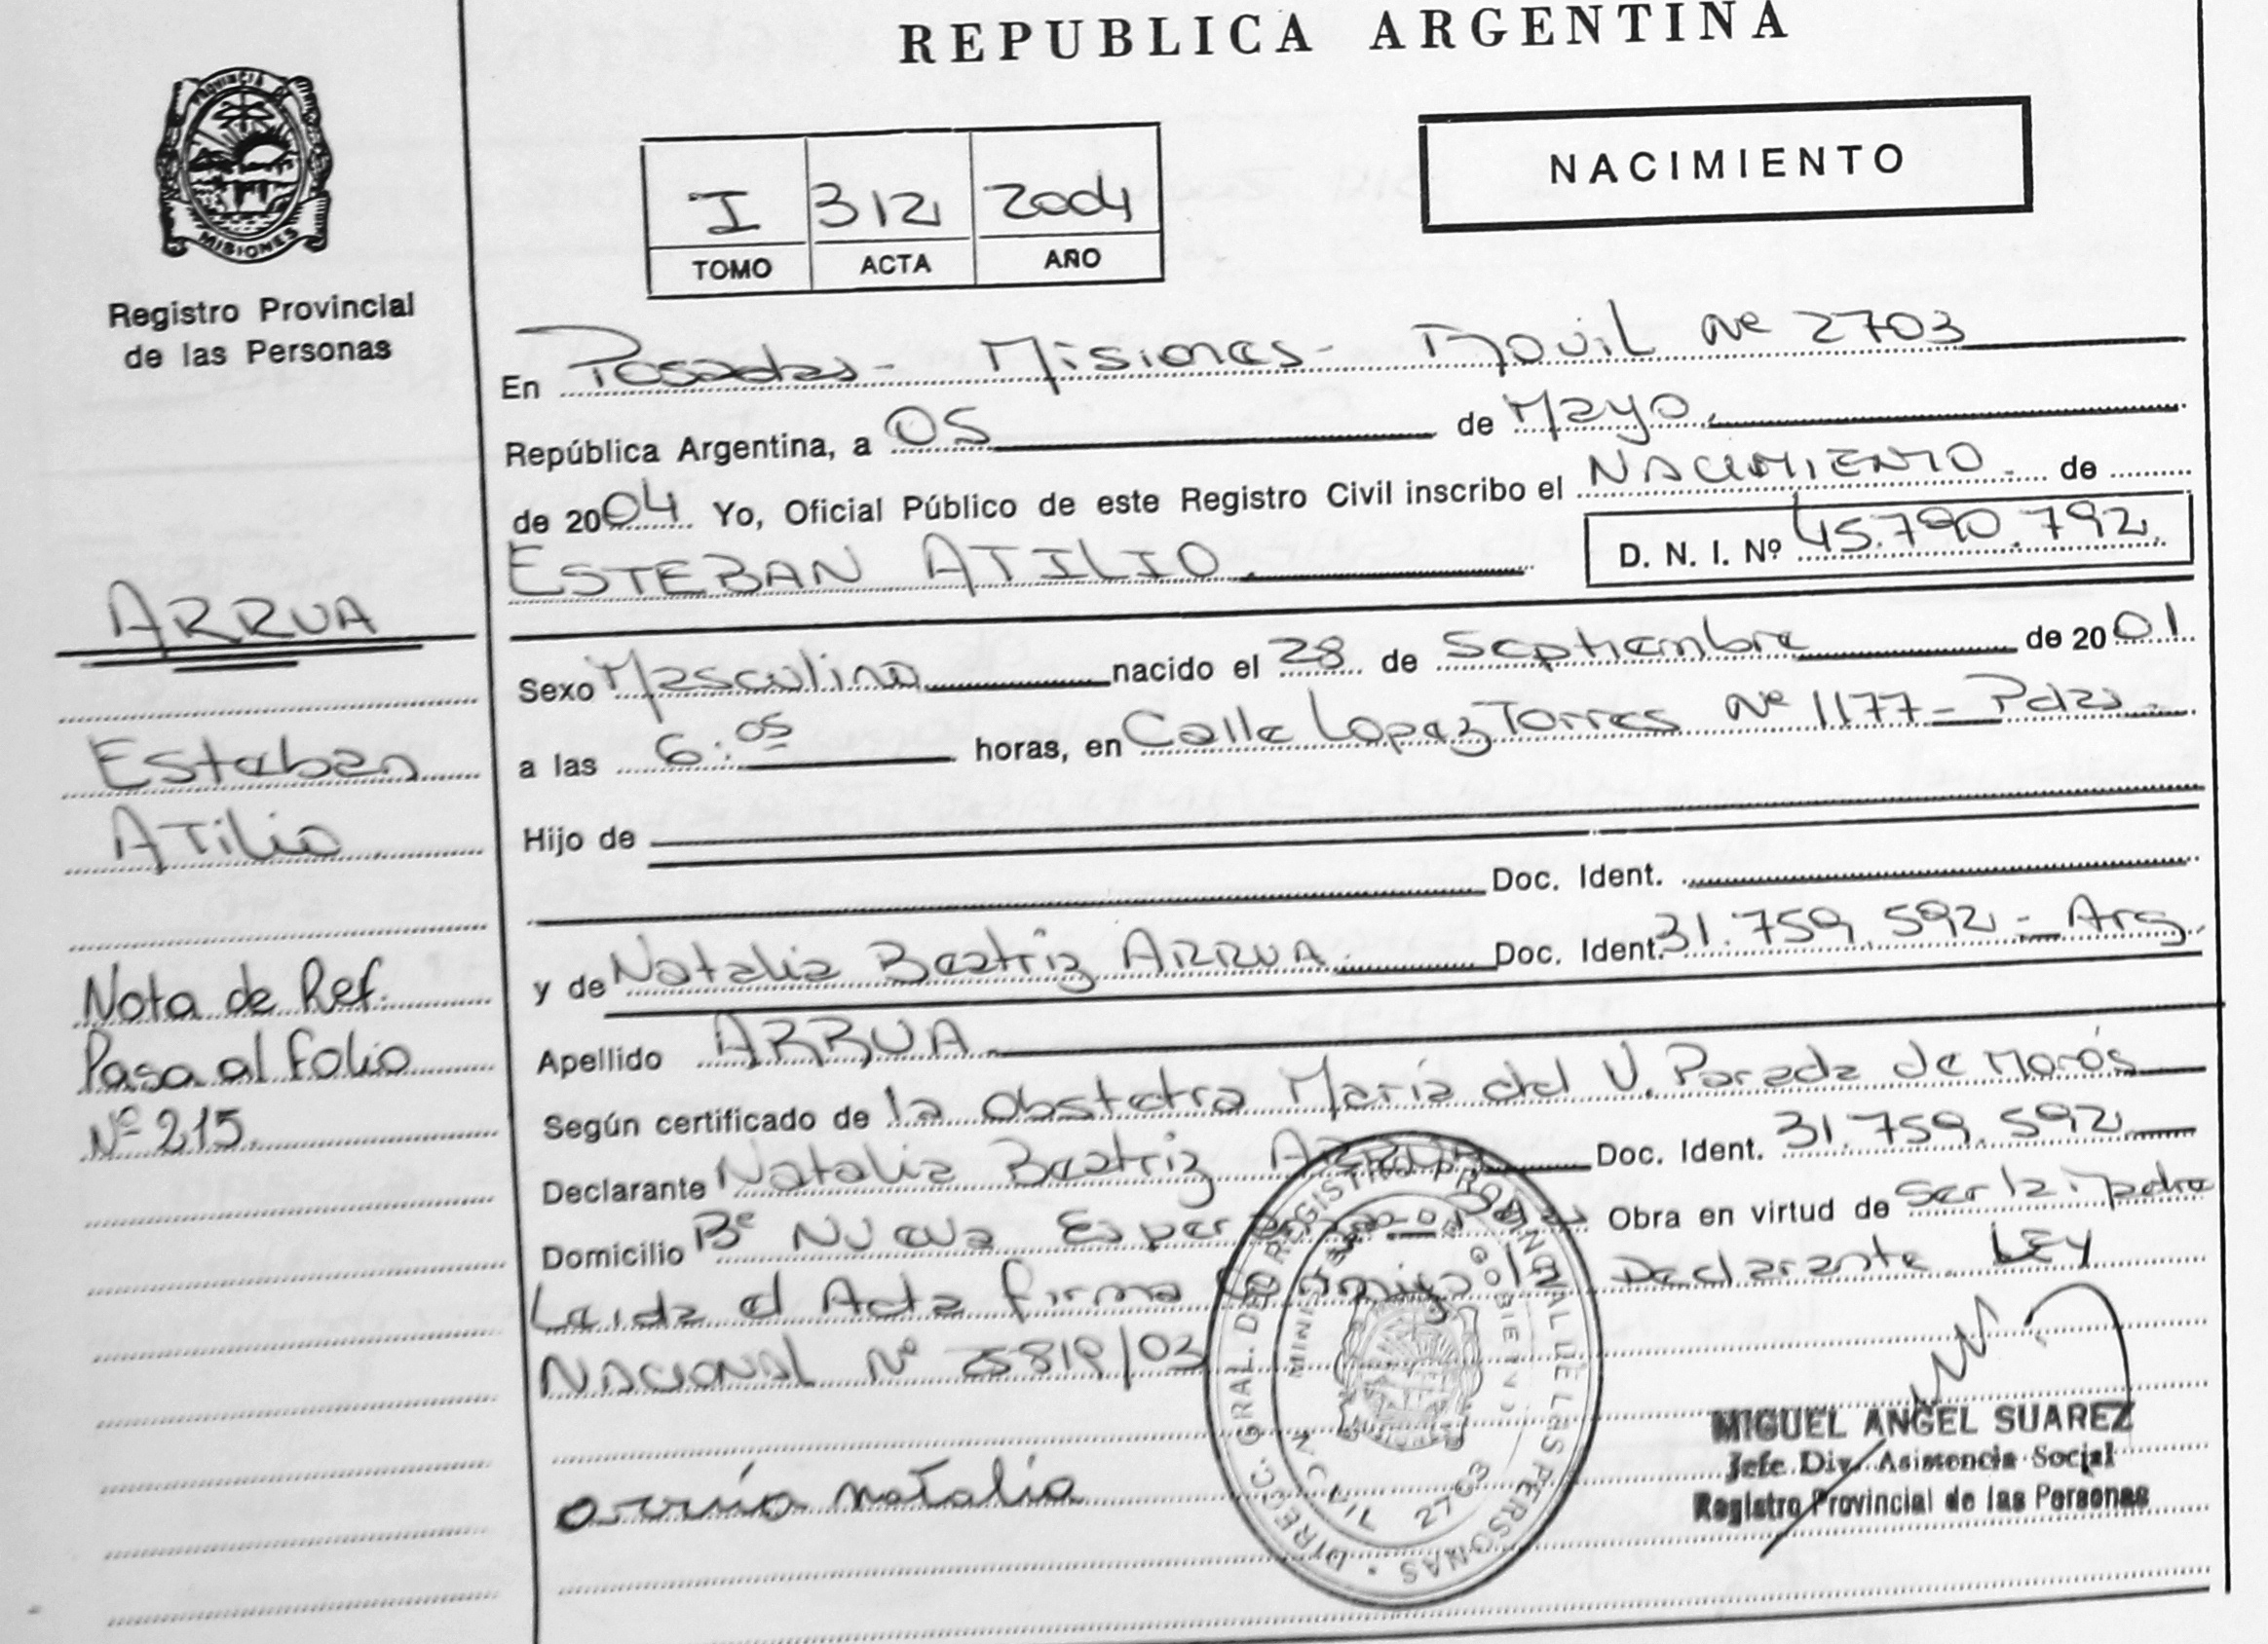 REPUBLICA ARGENTINA
PROVINCIA DE
MISIONES
Registro Provincial
de las Personas
I 312 2004
TOMO ACTA AÑO
NACIMIENTO
En Posadas - Misiones - Movil Nº 2703
República Argentina, a 05 de Mayo.
de 2004 Yo, Oficial Público de este Registro Civil inscribo el NACIMIENTO. de
ESTEBAN ATILIO.
D. N. I. Nº 45.790.792.
ARRUA
Esteban
Atilio
Nota de Ref.
Pasa al folio
Nº 215.
Sexo Masculino nacido el 28 de Septiembre de 2001
a las 6:05 horas, en Calle Lopez Torres Nº 1177 - Pdas.
Hijo de
Doc. Ident.
y de Natalia Beatriz ARRUA. Doc. Ident. 31.759.592 - Arg.
Apellido ARRUA.
Según certificado de la Obstetra María del V. Parada de Morós
Declarante Natalia Beatriz ARRUA Doc. Ident. 31.759.592
Domicilio Bº Nueva Esperanza - Pdas Obra en virtud de ser la madre
Leida el Acta firma conmigo la Declarante. LEY
NACIONAL Nº 25819/03
arrúa natalia
DIREC. GRAL. DEL REGISTRO PROVINCIAL DE LAS PERSONAS
MINISTERIO DE GOBIERNO
MOVIL 2703
MIGUEL ANGEL SUAREZ
Jefe Div. Asistencia Social
Registro Provincial de las Personas